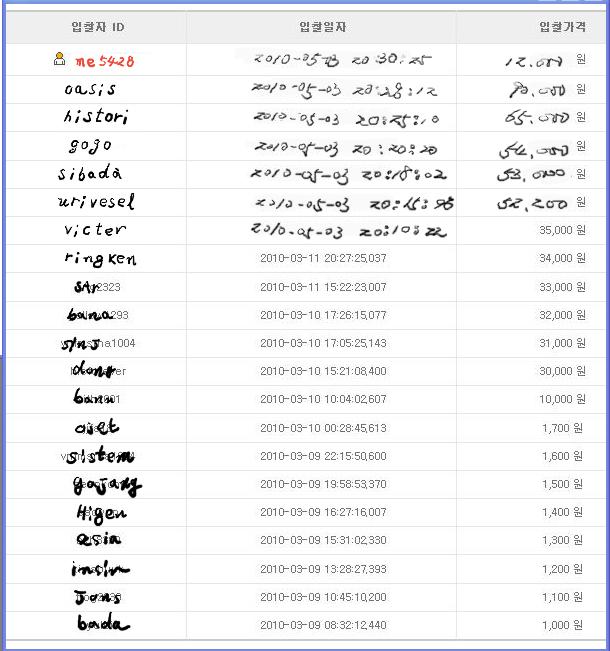 입찰자 ID 입찰일자 입찰가격
me5428 2010-05-13 20:30:25 12.000 원
oasis 2010-05-03 20:28:12 70.000 원
histori 2010-05-03 20:25:10 65.000 원
gogo 2010-05-03 20:20:20 54,000 원
sibada 2010-05-03 20:18:02 53,000 원
urivesel 2010-05-03 20:15:98 52,200 원
victer 2010-05-03 20:10:22 35,000 원
ringken 2010-03-11 20:27:25,037 34,000 원
2323 2010-03-11 15:22:23,007 33,000 원
bana 293 2010-03-10 17:26:15,077 32,000 원
1004 2010-03-10 17:05:25,143 31,000 원
2010-03-10 15:21:08,400 30,000 원
2010-03-10 10:04:02,607 10,000 원
2010-03-10 00:28:45,613 1,700 원
sistem 2010-03-09 22:15:50,600 1,600 원
gojang 2010-03-09 19:58:53,370 1,500 원
Higen 2010-03-09 16:27:16,007 1,400 원
asia 2010-03-09 15:31:02,330 1,300 원
2010-03-09 13:28:27,393 1,200 원
Jons 2010-03-09 10:45:10,200 1,100 원
bada 2010-03-09 08:32:12,440 1,000 원